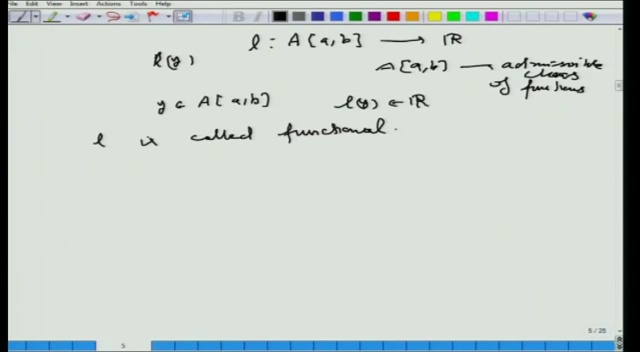 File Edit View Insert Actions Tools Help
l : A[a,b] ⟶ ℝ
l(y)
A[a,b] — admissible class of functions
y ∈ A[a,b] l(y) ∈ ℝ
l is called functional.
5 / 25
5